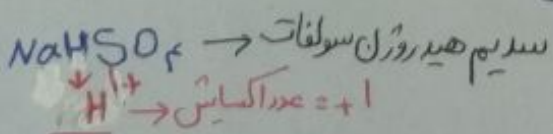 NaHSO۴ → سدیم هیدروژن سولفات
H¹⁺ → عدد اکسایش = +1